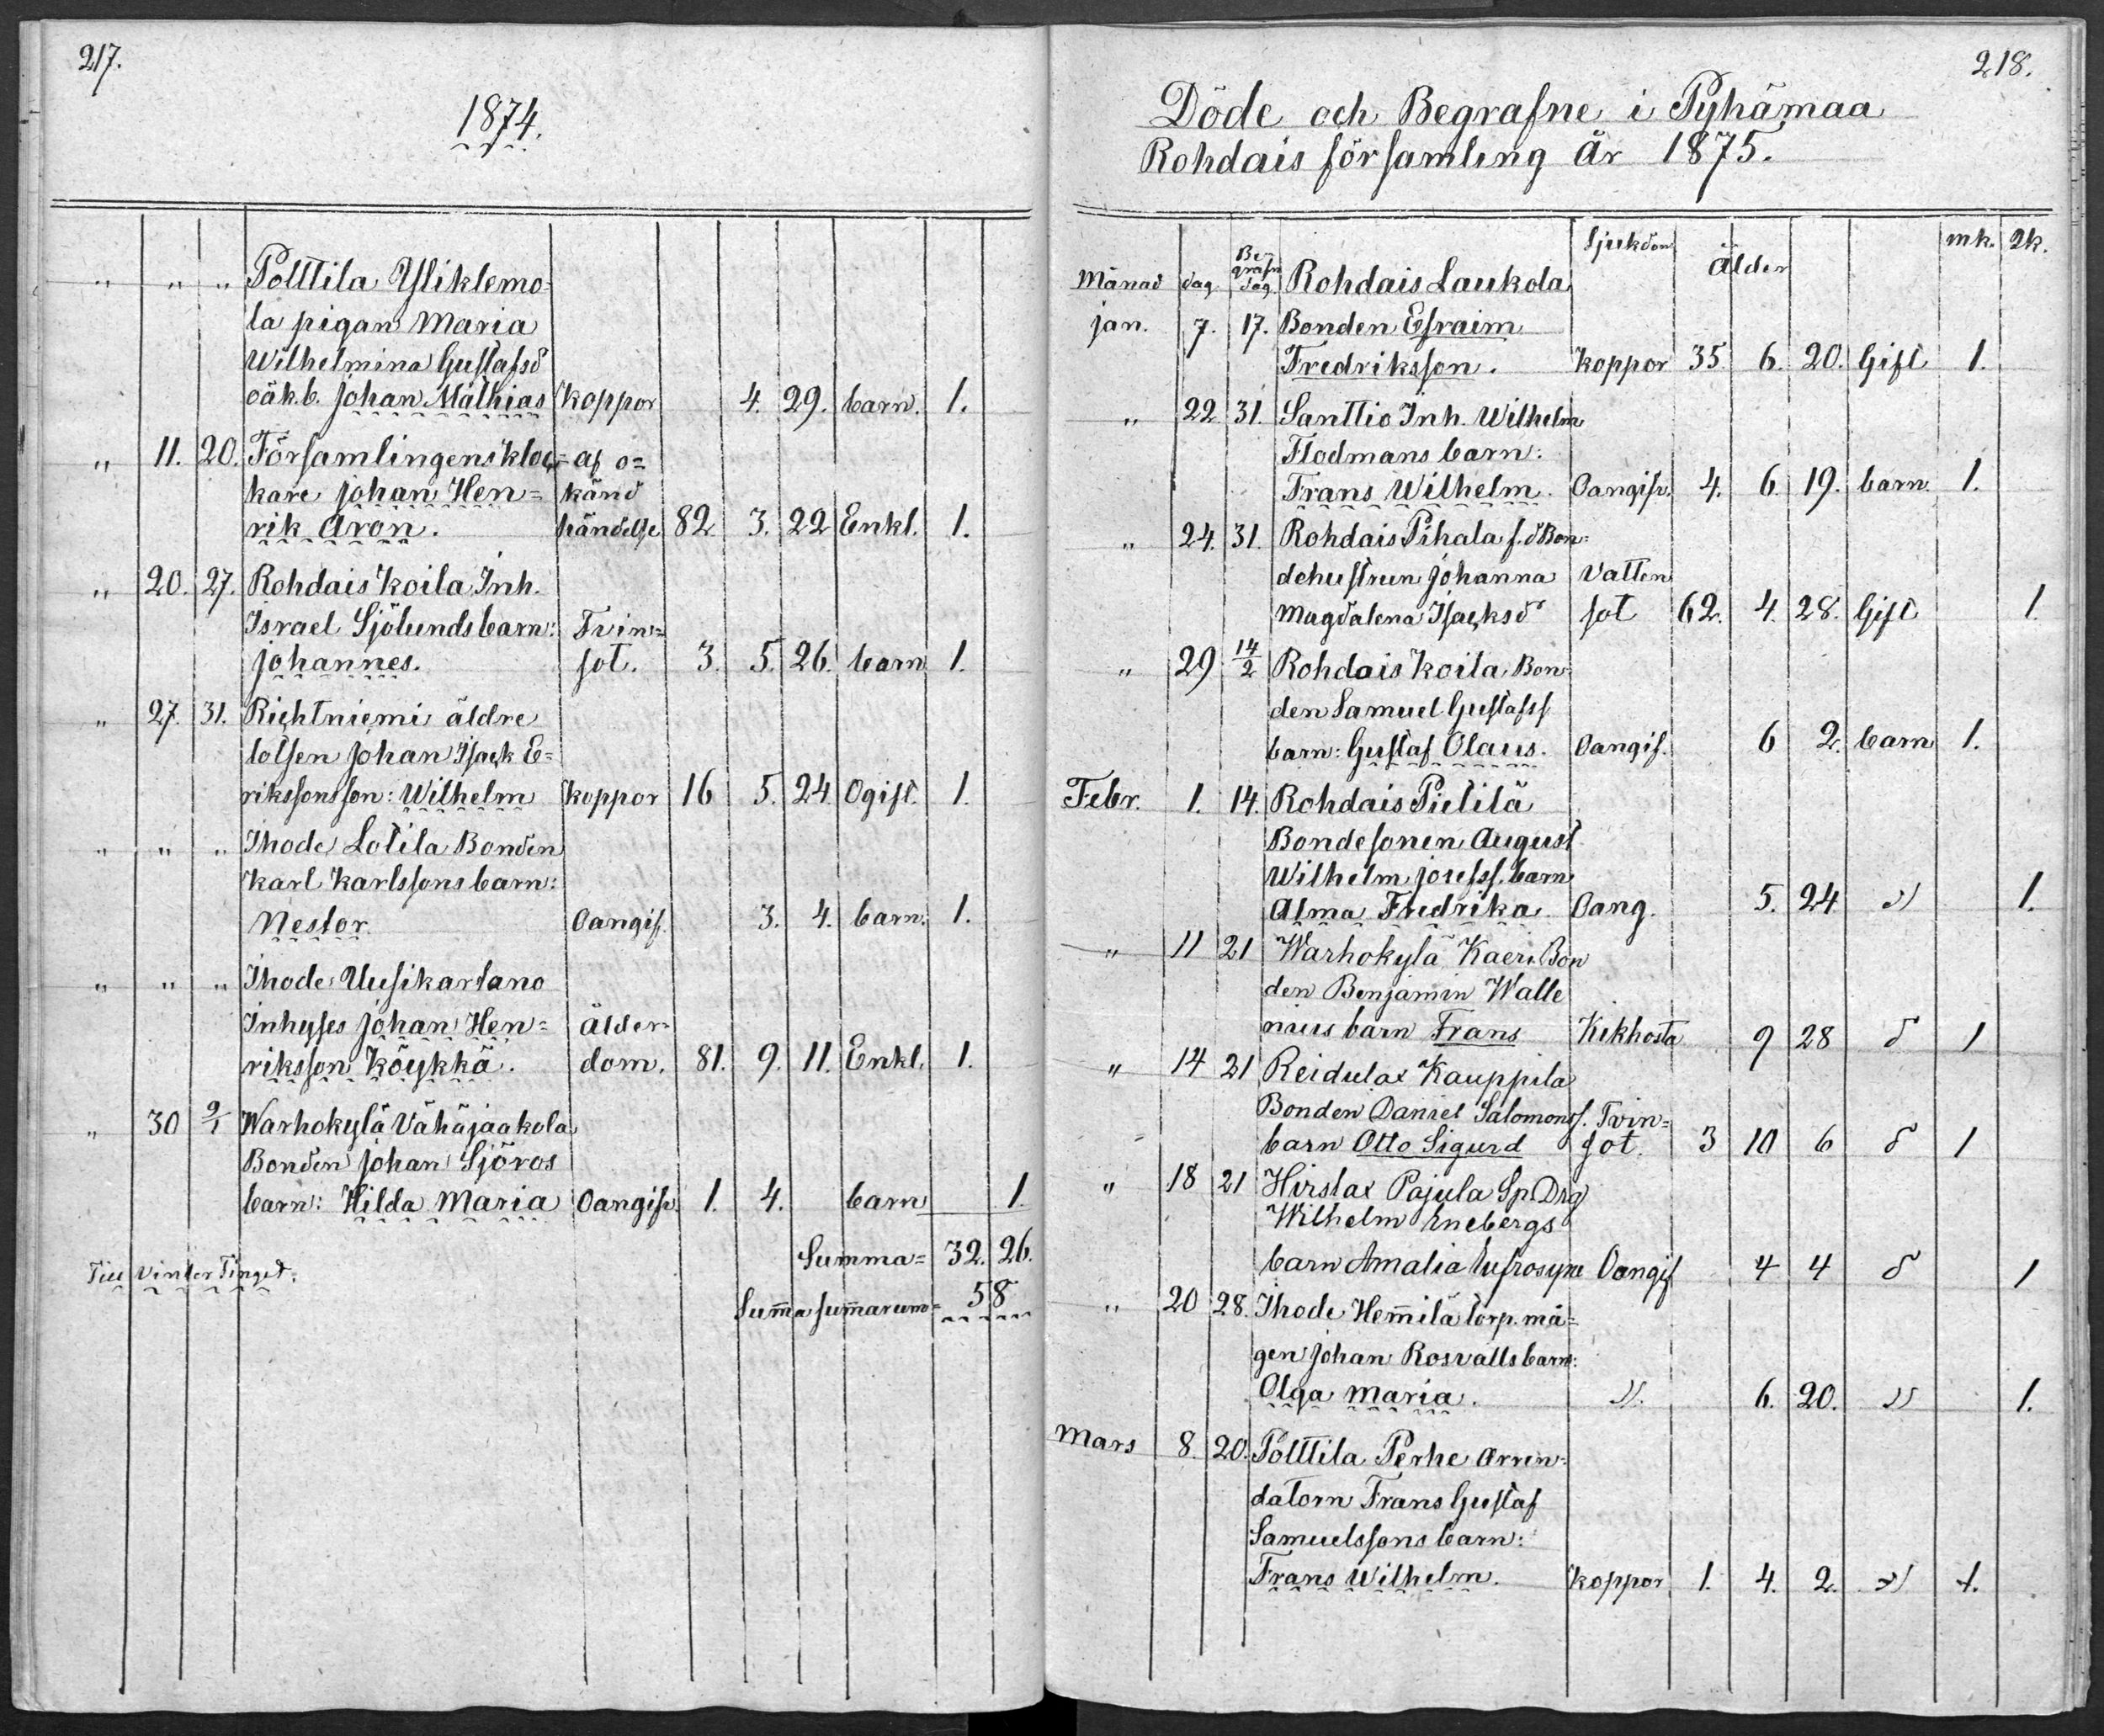 217.
1874.
" " " Polttila Yliklemo-
la pigan Maria
Wilhelmina Gustafsd
oäk. b. Johan Mathias koppor 4. 29. barn. 1.
" 11. 20. Församlingens kloc- af o=
kare Johan Hen= känd
rik Aron. händelse 82 3. 22 Enkl. 1.
" 20. 27. Rohdais Koila Inh.
Israel Sjölunds barn: Tvin=
Johannes. sot. 3. 5. 26. barn 1.
" 27. 31. Richtniemi äldre
bolsen Johan Isack E=
rikssons son: Wilhelm koppor 16 5. 24 Ogift. 1.
" " " Ihode Lotila Bonden
Karl Karlssons barn:
Nestor Oangif. 3. 4. barn. 1.
" " " Ihode Uusikartano
Inhyses Johan Hen= ålder-
riksson Köykkä. dom. 81. 9. 11. Enkl. 1.
" 30 9/1 Warhokylä Vähäjaakola
Bonden Johan Sjöros
barn: Hilda Maria Oangifv. 1. 4. barn 1.
Summa= 32. 26.
Till Vinter Tinget.
Sum̄a sum̄arum= 58
218.
Döde och Begrafne i Pyhämaa
Rohdais församling år 1875.
Månad dag Be-grafn dag Sjukdom Ålder mk. qk.
Rohdais Laukola
jan. 7. 17. Bonden Efraim
Fredriksson. koppor 35. 6. 20. Gift 1.
" 22 31. Santtio Inh. Wilhelm
Flodmans barn:
Frans Wilhelm. Oangifv. 4. 6. 19. barn. 1.
" 24. 31. Rohdais Pihala f. d Bon=
dehustrun Johanna Vatten
Magdalena Isacksd sot 62. 4. 28. Gift 1.
" 29 14/2 Rohdais Koila Bon-
den Samuel Gustafss
barn: Gustaf Olaus. Oangif. 6 2. barn 1.
Febr. 1. 14. Rohdais Pietilä
Bondesonen August
Wilhelm Josefss. barn
Alma Fredrika Oang. 5. 24 " 1.
" 11 21 Warhokylä Kaeri Bon
den Benjamin Walle
nius barn Frans Kikhosta 9 28 d 1
" 14 21 Reidulax Kauppila
Bonden Daniel Salomonss. Tvin=
barn Otto Sigurd sot. 3 10 6 d 1
" 18 21 Hirslax Pajula Sp. Drg
Wilhelm Enebergs
barn Amalia Eufrosyne Oangif 4 4 d 1
" 20 28. Ihode Hem̄ilä torp. må=
gen Johan Rosvalls barn:
Olga Maria. " 6. 20. " 1.
Mars 8. 20. Polttila Perhe Arren-
datorn Frans Gustaf
Samuelssons barn:
Frans Wilhelm. koppor 1. 4. 2. " 1.